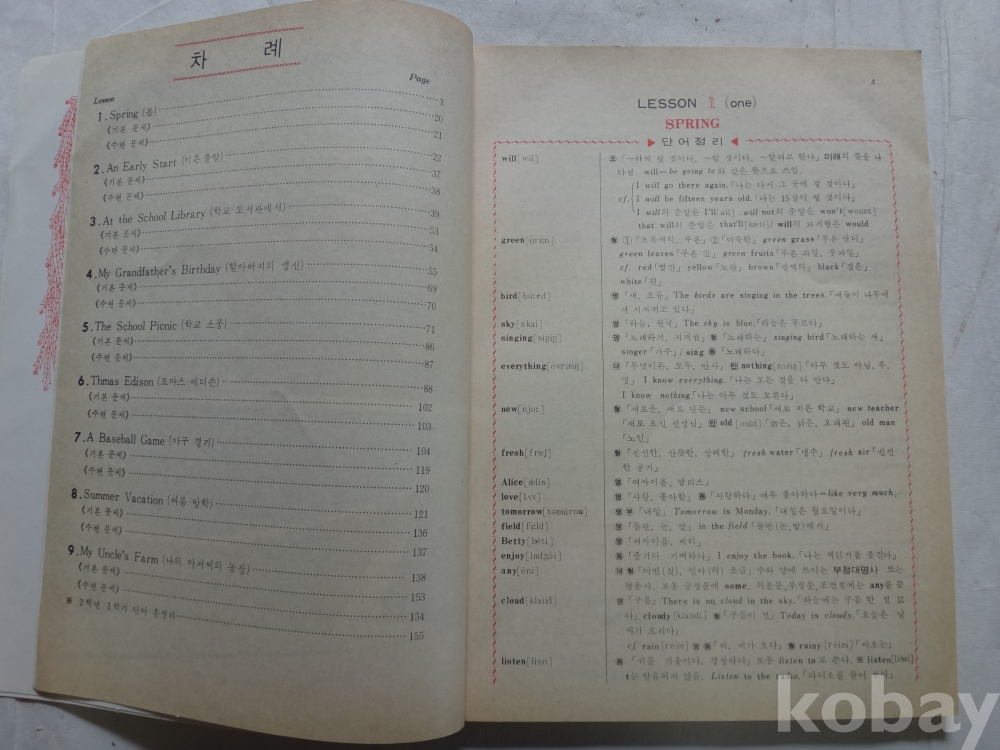 차 례
Lesson Page
1. Spring (봄) 3
《기본 문제》 20
《수련 문제》 21
2. An Early Start (이른 출발) 22
《기본 문제》 37
《수련 문제》 38
3. At the School Library (학교 도서관에서) 39
《기본 문제》 53
《수련 문제》 54
4. My Grandfather's Birthday (할아버지의 생신) 55
《기본 문제》 69
《수련 문제》 70
5. The School Picnic (학교 소풍) 71
《기본 문제》 86
《수련 문제》 87
6. Thmas Edison (토마스 에디슨) 88
《기본 문제》 102
《수련 문제》 103
7. A Baseball Game (야구 경기) 104
《기본 문제》 119
《수련 문제》 120
8. Summer Vacation (여름 방학) 121
《기본 문제》 136
《수련 문제》 137
9. My Uncle's Farm (나의 아저씨의 농장) 138
《기본 문제》 153
《수련 문제》 154
※ 2학년 1학기 단어 총정리 155
3
LESSON 1 (one)
SPRING
단어정리
will [wil] 조 「~하게 될 것이다, ~할 것이다, ~할려고 한다」 미래의 뜻을 나
타냄. will=be going to와 같은 뜻으로 쓰임.
I will go there again.「나는 다시 그 곳에 갈 것이다」
cf. I will be fifteen years old.「나는 15살이 될 것이다」
I will의 준말은 I'll[ail]. will not의 준말은 won't[wount]
that will의 준말은 that'll / will의 과거형은 would
green[gri:n] 형 ①「초록색의, 푸른」 ②「미숙한」 green grass「푸른 잔디」
green leaves「푸른 잎」 green fruits「푸른 과일, 풋과일」
cf. red「빨간」 yellow「노란」 brown「갈색의」 black「검은」
white「흰」
bird[bə:rd] 명「새, 조류」 The birds are singing in the trees.「새들이 나무에
서 지저귀고 있다」
sky[skai] 명「하늘, 천국」 The sky is blue.「하늘은 푸르다」
singing[siŋiŋ] 명「노래하기, 지저귐」 형「노래하는」 singing bird「노래하는 새」
singer「가수」/ sing 동「노래하다」
everything 대「무엇이든, 모두, 만사」 반 nothing「아무 것도 아님, 무,
영」 I know everything.「나는 모든 것을 다 안다」
I know nothing.「나는 아무 것도 모른다」
new[nju:] 형「새로운, 새로 만든」 new school「새로 지은 학교」 new teacher
「새로 오신 선생님」 반 old[ould]「늙은, 낡은, 오래된」 old man
「노인」
fresh[freʃ] 형「신선한, 산뜻한, 상쾌한」 fresh water「냉수」 fresh air「신선
한 공기」
Alice[ǽlis] 명「여자이름, 앨리스」
love[lʌv] 명「사랑, 좋아함」 동「사랑하다」 매우 좋아하다=like very much.
tomorrow 명 부「내일」 Tomorrow is Monday.「내일은 월요일이다」
field[fi:ld] 명「들판, 논, 밭」 in the field「들판(논, 밭)에서」
Betty[béti] 명「여자이름, 베티」
enjoy[indʒɔ́i] 동「즐기다, 기뻐하다」 I enjoy the book.「나는 책읽기를 즐긴다」
any[éni] 대 형「어떤(것), 얼마(의) 조금」 수와 양에 쓰이는 부정대명사 또는
형용사. 보통 긍정문에 some, 의문문,부정문,조건절에는 any를 씀
cloud[klaud] 명「구름」 There is no cloud in the sky.「하늘에는 구름 한 점 없
다」 cloudy[klaudi] 형「구름이 낀」 Today is cloudy.「오늘은 날
씨가 흐리다」
cf. rain[rein] 명 동「비, 비가 오다」 형 rainy[reini]「비오는」
listen[lisn] 동「귀를 기울이다, 경청하다」 보통 listen to로 쓴다. ※ listen[lisn]
t는 발음되지 않음. Listen to the radio.「라디오를 들어 보라」
kobay